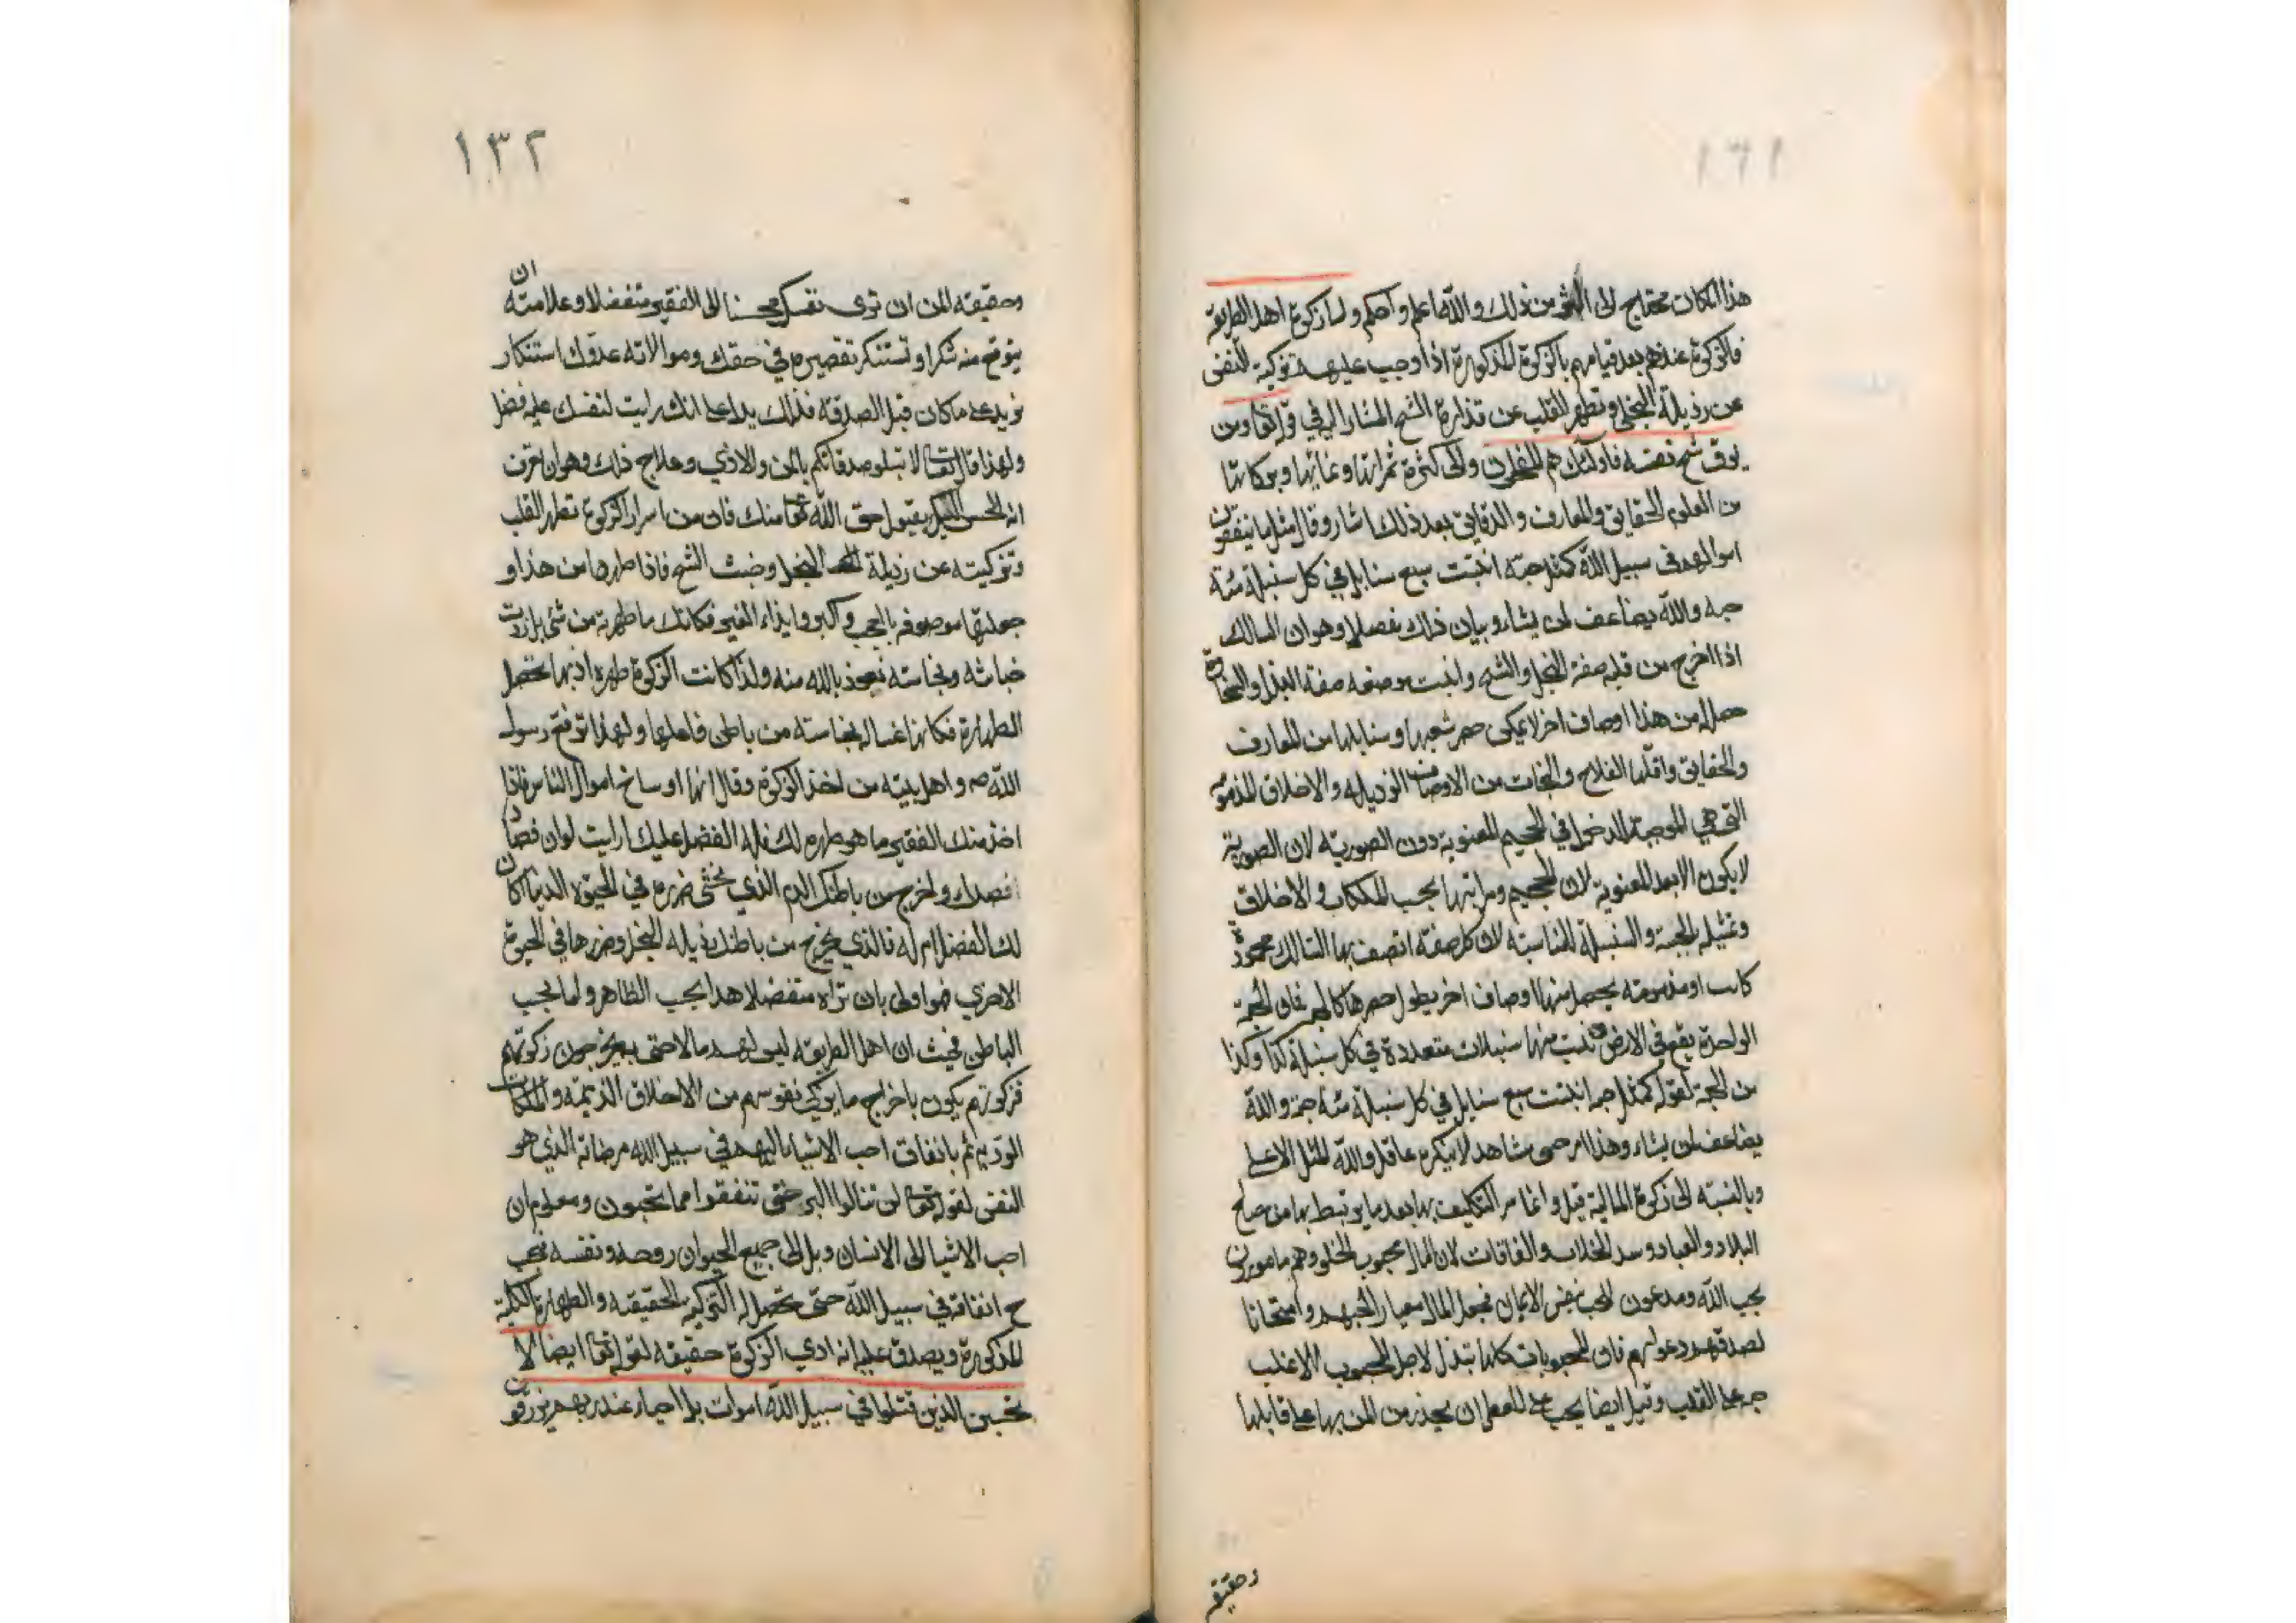 هذا المكان محتاج الى اكثر من ذلك والله اعلم واحكم واما زكوة اهل الطريقة
فالزكوة عندهم بعد قيامهم بالزكوة المذكورة اذا وجب عليهم تزكية النفس
عن رذيلة البخل وتطهير القلب عن قذارة الشح المشار اليه في قوله تعا ومن
يوق شح نفسه فاولئك هم المفلحون والى كثرة ثمراتها ونمائها وبركاتها
من العلوم الحقايق والمعارف والدقايق بعد ذلك اشار وقال مثل ما ينفقون
اموالهم في سبيل الله كمثل حبة انبتت سبع سنابل في كل سنبلة مئة
حبه والله يضاعف لمن يشاء وبيان ذلك مفصلا وهو ان السالك
اذا اخرج من قلبه صفة البخل والشح وانبت موضعه صفة البذل والسخاوة
حصل له من هذا اوصاف اخر لا يمكن حصر شعبها وسنابلها من المعارف
والحقايق واقلها الفلاح والنجات من الاوصاف الرذيله والاخلاق المذمومه
التي هي الموجبة الدخول في الجحيم المعنوية دون الصوريه لان الصورية
لا يكون الا بعد المعنوية لان الجحيم ومراتبها بحسب الملكات والاخلاق
وتمثيله بالحبة والسنبلة المناسبته لان كل صفة اتصف بها السالك محمودة
كانت او مذمومه يحصل منها اوصاف اخر يطول حصرها كالحبه فان الحبة
الواحدة يقع في الارض تنبت منها سنبلات متعددة في كل سنبلة كذا وكذا
من الحبة لقوله كمثل حبة انبتت سبع سنابل في كل سنبلة مئة حبة والله
يضاعف لمن يشاء وهذا امر حسي مشاهد لا ينكره عاقل والله المثل الاعلى
وبالنسبه الى زكوة المالية قيل وانما سر التكليف بها بعد ما يرتبط بها من صالح
البلاد والعباد وسد الخلات والفاقات لان المال محبوب الخلق وهم مامورون
بحب الله ومدعون الحب بنفس الايمان فجعل المال معيارا لحبهم وامتحانا
لصدقهم دعواهم فان المحبوبات كلها تبذل لاجل المحبوب الاغلب
حبه على القلب وقيل ايضا يجب على المعطي ان يحذر من المن بها على قابلها
وحقيقه
١٣٢
وحقيقه المن ان ترى نفسك محسنا الى الفقير متفضلا وعلامته ان
يتوقع منه شكرا وتستنكر تقصيره في حقك وموالاته عدوك استنكار
يزيد على ما كان قبل الصدقه فذلك يدل على انك رايت لنفسك عليه فضلا
ولهذا قال تعا لا تبطلو صدقاتكم بالمن والاذي وعلاج ذلك وهو ان تعرف
انه المحسن اليك بقبول حق الله تعا منك فان من اسرار الزكوة تطهير القلب
وتزكيته عن رذيلة البخل وخبث الشح فاذا طهرها من هذا و
جعلتها موصوفه بالعجب والكبر وايذاء الفقير فكانك ما طهرته من شئ بل زدت
خباثه ونجاسته نعوذ بالله منه ولذا كانت الزكوة طهرة اذ بها تحصل
الطهارة فكانها غسالة نجاسته من باطن فاعلها ولهذا ترفع رسول
الله ص واهل بيته من اخذ الزكوة وقال انها اوساخ اموال الناس فاذا
اخذ منك الفقير ما هو طهرة لك فله الفضل عليك ارايت لو ان فصادا
فصدك واخرج من باطنك الدم الذي تخشى ضرره في الحيوة الدنيا اكان
لك الفضل ام له فالذي يخرج من باطنك رذيله البخل وضررها في الحيوة
الاخري هو اولى بان تراه متفضلا هذا بحسب الظاهر واما بحسب
الباطن فحيث ان اهل الطريقه ليس لهم مالا حتى يخرجون زكوتهم
فزكوتهم يكون باخراج ما يزكى نفوسهم من الاخلاق الذميمه والملكات
الرديه ثم بانفاق احب الاشياء اليهم في سبيل الله مرضاته الذي هو
النفس لقوله تعا لن تنالوا البر حتى تنفقوا مما تحبون ومعلوم ان
احب الاشيا الى الانسان وبل الى جميع الحيوان روحه ونفسه فيجب
ح انفاقه في سبيل الله حتى تحصل له التزكيه الحقيقه والطهارة الكلية
المذكورة ويصدق عليه انه ادي الزكوة حقيقه لقوله تعا ايضا لا
تحسبن الذين قتلوا في سبيل الله امواتا بل احياء عند ربهم يرزقون